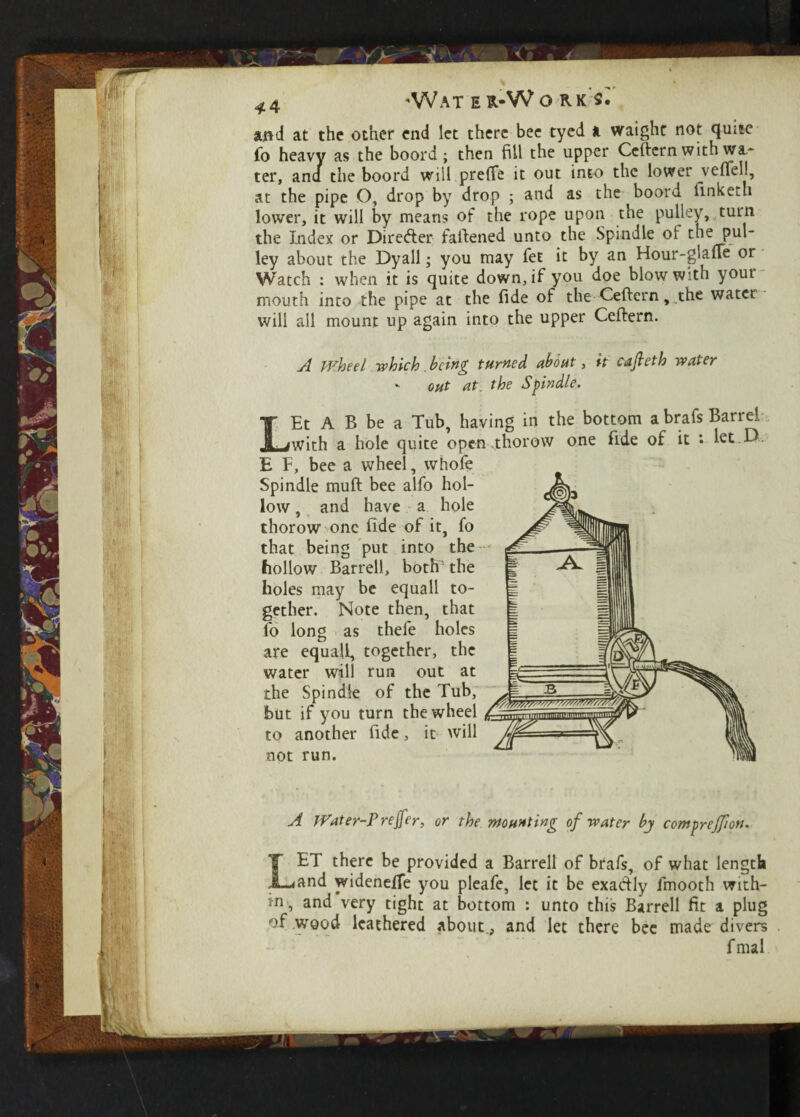 44 Water-Works.
and at the other end let there bee tyed a waight not quite
ſo heavy as the boord ; then fill the upper Ceſtern with wa-
ter, and the boord will preſſe it out into the lower veſſell,
at the pipe O, drop by drop ; and as the boord ſinketh
lower, it will by means of the rope upon the pulley, turn
the Index or Directer faſtened unto the Spindle of the pul-
ley about the Dyall ; you may ſet it by an Hour-glaſſe or
Watch : when it is quite down, if you doe blow with your
mouth into the pipe at the ſide of the Ceſtern, the water
will all mount up again into the upper Ceſtern.
A Wheel which being turned about, it caſteth water
out at the Spindle.
LEt A B be a Tub, having in the bottom a braſs Barrel
with a hole quite open thorow one ſide of it : let D
E F, bee a wheel, whoſe
Spindle muſt bee alſo hol-
low, and have a hole
thorow one ſide of it, ſo
that being put into the
hollow Barrell, both the
holes may be equall to-
gether. Note then, that
ſo long as theſe holes
are equall, together, the
water will run out at
the Spindle of the Tub,
but if you turn the wheel
to another ſide, it will
not run.
A
B
D
E
F
A Water-Preſſer, or the mounting of water by compreſſion.
LET there be provided a Barrell of braſs, of what length
and wideneſſe you pleaſe, let it be exactly ſmooth with-
in, and very tight at bottom : unto this Barrell fit a plug
of wood leathered about, and let there bee made divers
ſmal